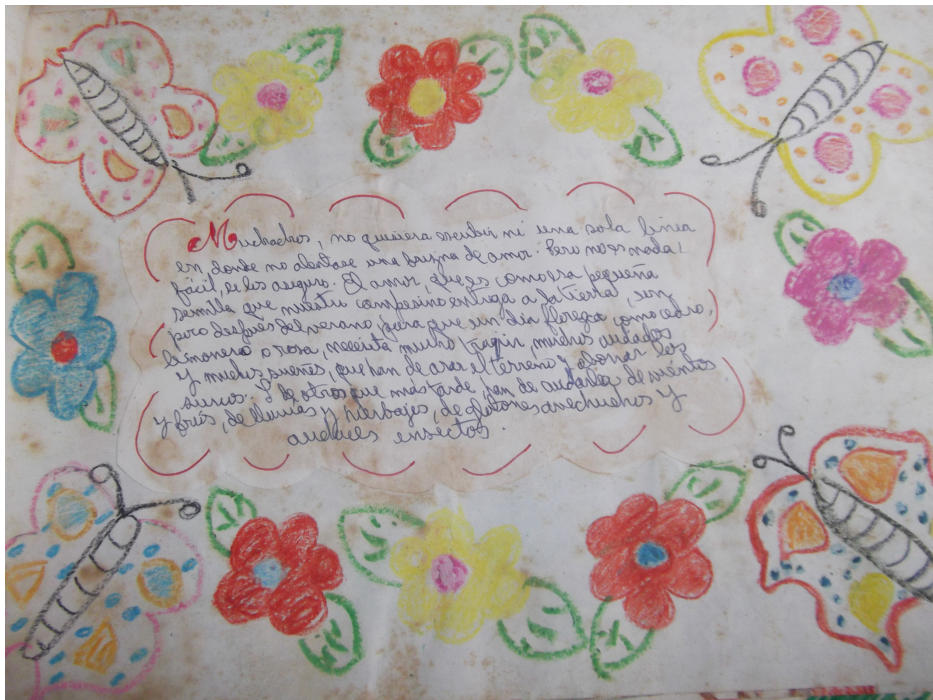 Muchachos, no quisiera escribir ni una sola línea
en, donde no alentase una brizna de amor. Pero no es nada
fácil, se les auguro. El amor, que es como esa pequeña
semilla que nuestro campesino entrega a la tierra, un
poco después del verano, para que un día florezca como cedro,
limonero o rosa, necesita mucho trajín, muchos cuidados
y muchos sueños, que han de arar el terreno y abonar los
surcos. de otros que más tarde, han de cuidarla de vientos
y fríos, de lluvias y hierbajos, de glotones avechuchos y
audaces insectos.